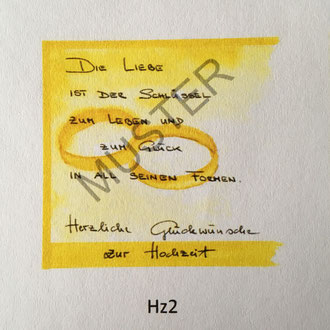 DIE LIEBE
IST DER SCHLÜSSEL
ZUM LEBEN UND
ZUM GLÜCK
IN ALL SEINEN FORMEN.
Herzliche Glückwünsche
zur Hochzeit
MUSTER
Hz2